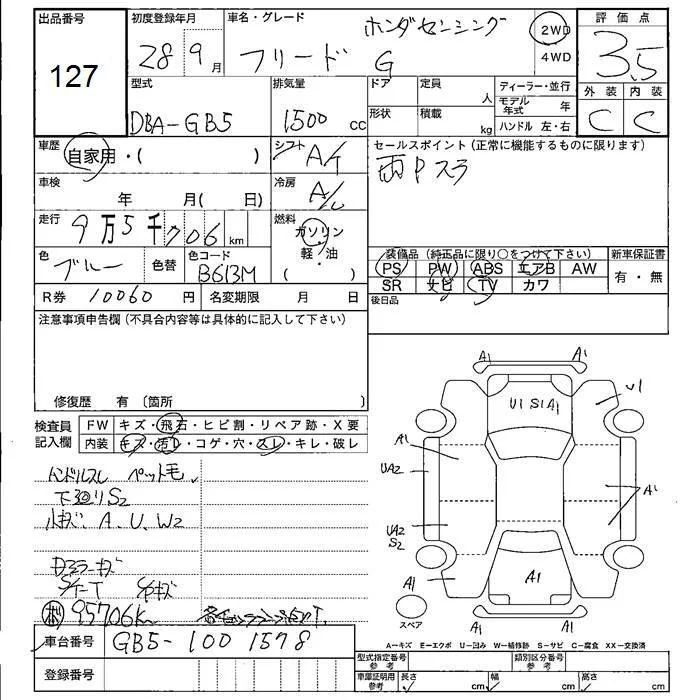 出品番号 初度登録年月 車名・グレード ホンダセンシング 2WD 評価点
127 28 9月 フリード G 4WD 3.5
型式 排気量 ドア 定員 人 ディーラー・並行 外装 内装
DBA-GB5 1500 cc 形状 積載 kg モデル年式 年 C C
ハンドル 左・右
車歴 自家用・( ) シフト A/T セールスポイント(正常に機能するものに限ります)
車検 年 月( 日) 冷房 A/C 雨 P スラ
走行 9万5千706km 燃料 ガソリン・軽・油 ( )
色 ブルー 色替 色コード B613M 装備品(純正品に限り○をつけて下さい) 新車保証書
PS PW ABS エアB AW 有・無
SR ナビ TV カワ
R券 10060円 名変期限 月 日 後日品
注意事項申告欄(不具合内容等は具体的に記入して下さい)
修復歴 有〔箇所 〕
検査員記入欄 FW キズ・飛石・ヒビ割・リペア跡・X要
内装 キズ・汚レ・コゲ・穴・スレ・キレ・破レ
ハンドルスレ ペット毛
下廻リS2
小キズ A、U、W2
95706km
車台番号 GB5-1001578
登録番号
A1 A1
U1
U1 S1 A1
A1
UA2 A1
UA2
S2
A1 A1
A1 A1
スペア
A－キズ E－エクボ U－凹み W－補修跡 S－サビ C－腐食 XX－交換済
型式指定番号 参考 類別区分番号 参考
車庫証明用 参考 長さ cm 幅 cm 高さ cm